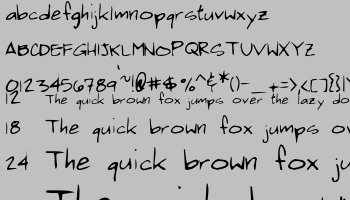 abcdefghijklmnopqrstuvwxyz
ABCDEFGHIJKLMNOPQRSTUVWXYZ
0123456789`~!@#$%^&*()-_+=><[]{}|\
12 The quick brown fox jumps over the lazy do
18 The quick brown fox jumps o
24 The quick brown fox ju